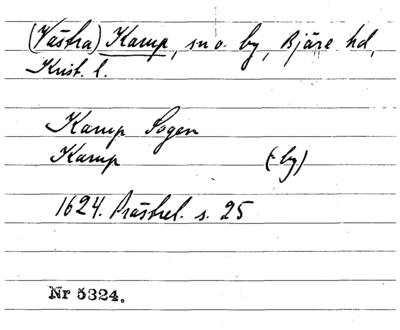 (Västra) Karup, sn o. by, Bjäre hd,
Krist. l.
Karup Sogen
Karup (-by)
1624. Prästrel. s. 25
Nr 5324.